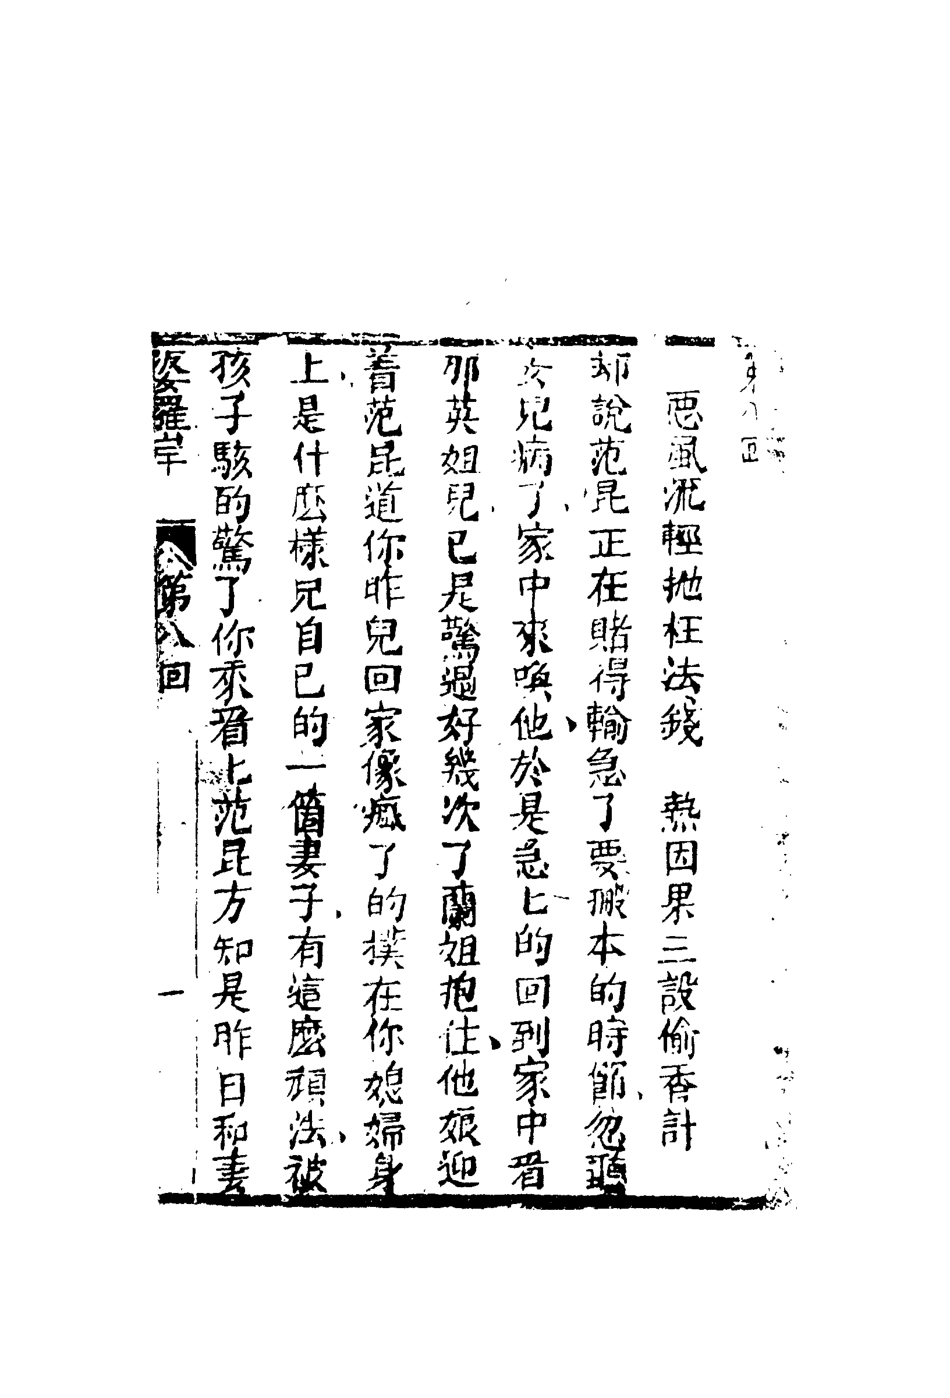 第八回
惡風流輕抛枉法錢　熱因果三設偷香計
却說范昆正在賭得輸急了要搬本的時節忽聽
女兒病了家中來喚他於是急匕的回到家中看
那英姐兒已是驚過好幾次了蘭姐抱住他娘迎
着范昆道你昨兒回家像瘋了的撲在你媳婦身
上是什麽樣兒自己的一箇妻子有這麽頑法被
孩子駭的驚了你來看匕范昆方知是昨日和妻
婆羅岸
第八回
一